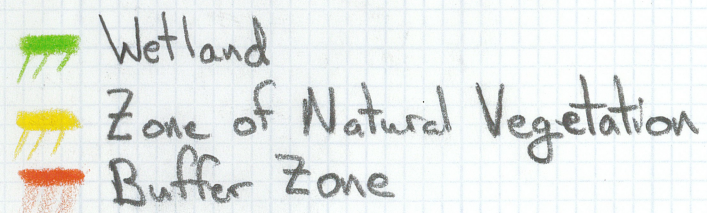 Wetland
Zone of Natural Vegetation
Buffer Zone